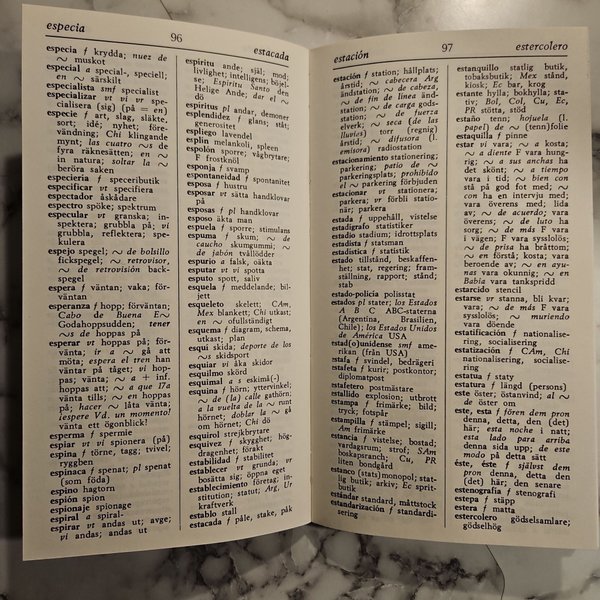 especia
96
estacada
especia f krydda; nuez de
~ muskot
especial a special-, speciell;
en ~ särskilt
especialista smf specialist
especializar vt vi vr spe-
cialisera (sig) (på = en)
especie f art, slag, släkte,
sort; idé; nyhet; före-
vändning; Chi klingande
mynt; las cuatro ~s de
fyra räknesätten; en ~
in natura; soltar la ~
beröra saken
especiería f speceributik
especificar vt specifiera
espectador åskådare
espectro spöke; spektrum
especular vt granska; in-
spektera; grubbla på; vi
grubbla, reflektera; spe-
kulera
espejo spegel; ~ de bolsillo
fickspegel; ~ retrovisor,
~ de retrovisión back-
spegel
espera f väntan; vaka; för-
väntan
esperanza f hopp; förväntan;
Cabo de Buena E~
Godahoppsudden; tener
~s de hoppas på
esperar vt hoppas på; för-
vänta; ir a ~ gå att
möta; espera el tren han
väntar på tåget; vi hop-
pas; vänta; ~ a + inf.
hoppas att; ~ a que 17a
vänta tills; ~ en hoppas
på; hacer ~ låta vänta;
¡espere Vd. un momento!
vänta ett ögonblick!
esperma f spermie
espiar vt vi spionera (på)
espina f törne, tagg; tvivel;
ryggben
espinaca f spenat; pl spenat
(som föda)
espino hagtorn
espión spion
espionaje spionage
espiral a spiral-
espirar vt andas ut; avge;
vi andas; andas ut
espíritu ande; själ; mod;
livlighet; intelligens; bijel-
se; Espíritu Santo den
Helige Ande; dar el ~
dö
espíritus pl andar, demoner
esplendidez f glans; ståt;
generositet
espliego lavendel
esplín melankoli, spleen
espolón sporre; vågbrytare;
F frostknöl
esponja f svamp
espontaneidad f spontanitet
esposa f hustru
esposar vt sätta handklovar
på
esposas f pl handklovar
esposo make
espuela f sporre; stimulans
espuma f skum; ~ de
caucho skumgummi; ~
de jabón tvållödder
espurio a falsk, oäkta
esputar vt vi spotta
esputo spott, saliv
esquela f meddelande; bil-
jett
esqueleto skelett; CAm,
Mex blankett; Chi utkast;
en ~ ofullständigt
esquema f diagram, schema,
utkast; plan
esquí skida; deporte de los
~s skidsport
esquiar vi åka skidor
esquilmo skörd
esquimal a s eskimå(-)
esquina f hörn; yttervinkel;
~ de (la) calle gathörn;
a la vuelta de la ~ runt
hörnet; doblar la ~ gå
om hörnet; Chi dö
esquirol strejkbrytare
esquivez f skygghet; hög-
dragenhet; förakt
estabilidad f stabilitet
establecer vt grunda; vr
bosätta sig; öppna eget
establecimiento företag; in-
stitution; statut; Arg, Ur
kraftverk
establo stall
estacada f påle, stake, påk
estación
97
estercolero
estación f station; hållplats;
årstid; ~ cabecera Arg
ändstation; ~ de cabeza,
~ de fin de línea änd-
station; ~ de carga gods-
station; ~ de fuerza
elverk; ~ seca (de las
lluvias) torr (regnig)
årstid; ~ difusora (l.
emisora) radiostation
estacionamiento stationering;
parkering; patio de ~
parkeringsplats; prohibido
el ~ parkering förbjuden
estacionar vt stationera;
parkera; vr förbli statio-
när; parkera
estada f uppehåll, vistelse
estadígrafo statistiker
estadio stadium; idrottsplats
estadista f statsman
estadística f statistik
estado tillstånd, beskaffen-
het; stat, regering; fram-
ställning, rapport; stånd;
stab
estado-policía polisstat
estados pl stater; los Estados
A B C ABC-staterna
(Argentina, Brasilien,
Chile); los Estados Unidos
de América USA
estad(o)unidense smf ame-
rikan (från USA)
estafa f svindel, bedrägeri
estafeta f kurir; postkontor;
diplomatpost
estafetero postmästare
estallido explosion, utbrott
estampa f frimärke; bild,
tryck; fotspår
estampilla f stämpel; sigill;
Am frimärke
estancia f vistelse; bostad;
vardagsrum; strof; SAm
boskapsranch; Cu, PR
liten bondgård
estanco (stats)monopol; stat-
lig butik; arkiv; Ec sprit-
butik
estándar standard, måttstock
estandarización f standardi-
sering
estanquillo statlig butik,
tobaksbutik; Mex stånd,
kiosk; Ec bar, krog
estante hylla; bokhylla; sta-
tiv; Bol, Col, Cu, Ec,
PR stötta, stöd
estaño tenn; hojuela (l.
papel) de ~ (tenn)folie
estaquilla f pinne
estar vi vara; ~ a kosta;
~ a diente F vara hung-
rig; ~ a sus anchas ha
det skönt; ~ a tiempo
vara i tid; ~ bien con
stå på god fot med; ~
con ha en intervju med;
vara överens med; lida
av; ~ de acuerdo; vara
överens; ~ de luto ha
sorg; ~ de más F vara
i vägen; F vara sysslolös;
~ de prisa ha bråttom;
~ en förstå; kosta; vara
beroende av; ~ en ayu-
nas vara okunnig; ~ en
Babia vara tankspridd
estarcido stencil
estarse vr stanna, bli kvar;
vara; ~ de más F vara
sysslolös; ~ muriendo
vara döende
estatificación f nationalise-
ring, socialisering
estatización f CAm, Chi
nationalisering, socialise-
ring
estatua f staty
estatura f längd (persons)
este öster; östanvind; al ~
de öster om
este, esta f fören dem pron
denna, detta, den (det)
här; esta noche i natt;
esta lado para arriba
denna sida upp; de este
modo på detta sätt
éste, éste f självst dem
pron denna, detta, den
(det) här; den senare
estenografía f stenografi
estepa f stäpp
estera f matta
estercolero gödselsamlare;
gödselhög